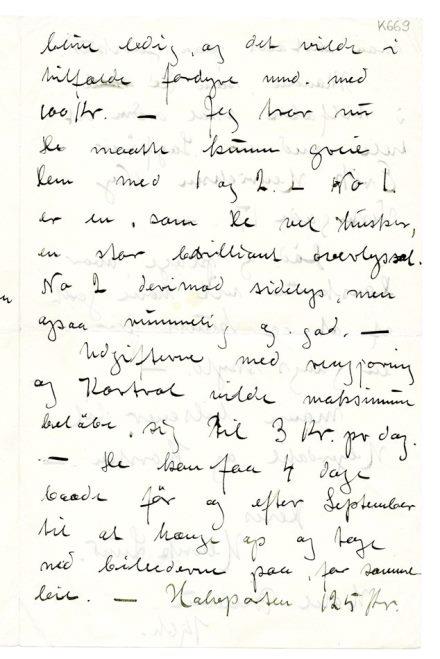 K669
blive ledig, og det vilde i
tilfælde fordyre mud. med
100 Kr. — Jeg tror nu
De maatte kunne greie
Dem med 1 og 2. — No 1.
er en, som De vel husker,
en stor brilliant overlyssal.
No 2 derimod sidelys, men
ogsaa rummelig og god. —
Udgifterne med rengjøring
og Kontrol vilde maksimum
beløbe sig til 3 Kr. pr dag.
— De kan faa 4 dage
baade før og efter September
til at hænge op og tage
ned billederne paa, for samme
leie. — Halvparten 125 Kr.